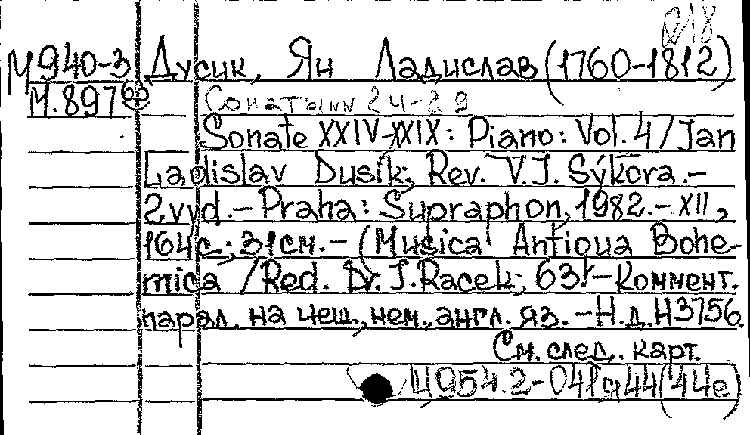 М940-3 Дусик, Ян Ладислав (1760-1812)
М.897 Сонатыnn 24-29
Sonate XXIV-XXIX: Piano: Vol. 4/Jan
Ladislav Dusík. Rev. V.J. Sýkora.-
2vyd.-Praha: Supraphon, 1982.-XII,
164с.; 31см.-(Musica Antiqua Bohe-
mica /Red. Dr. J. Racek; 63).-Коммент.
парал. на чеш., нем., англ. яз.-Н.д.Н3756.
См. след. карт.
Щ954.2-041я44(44е)